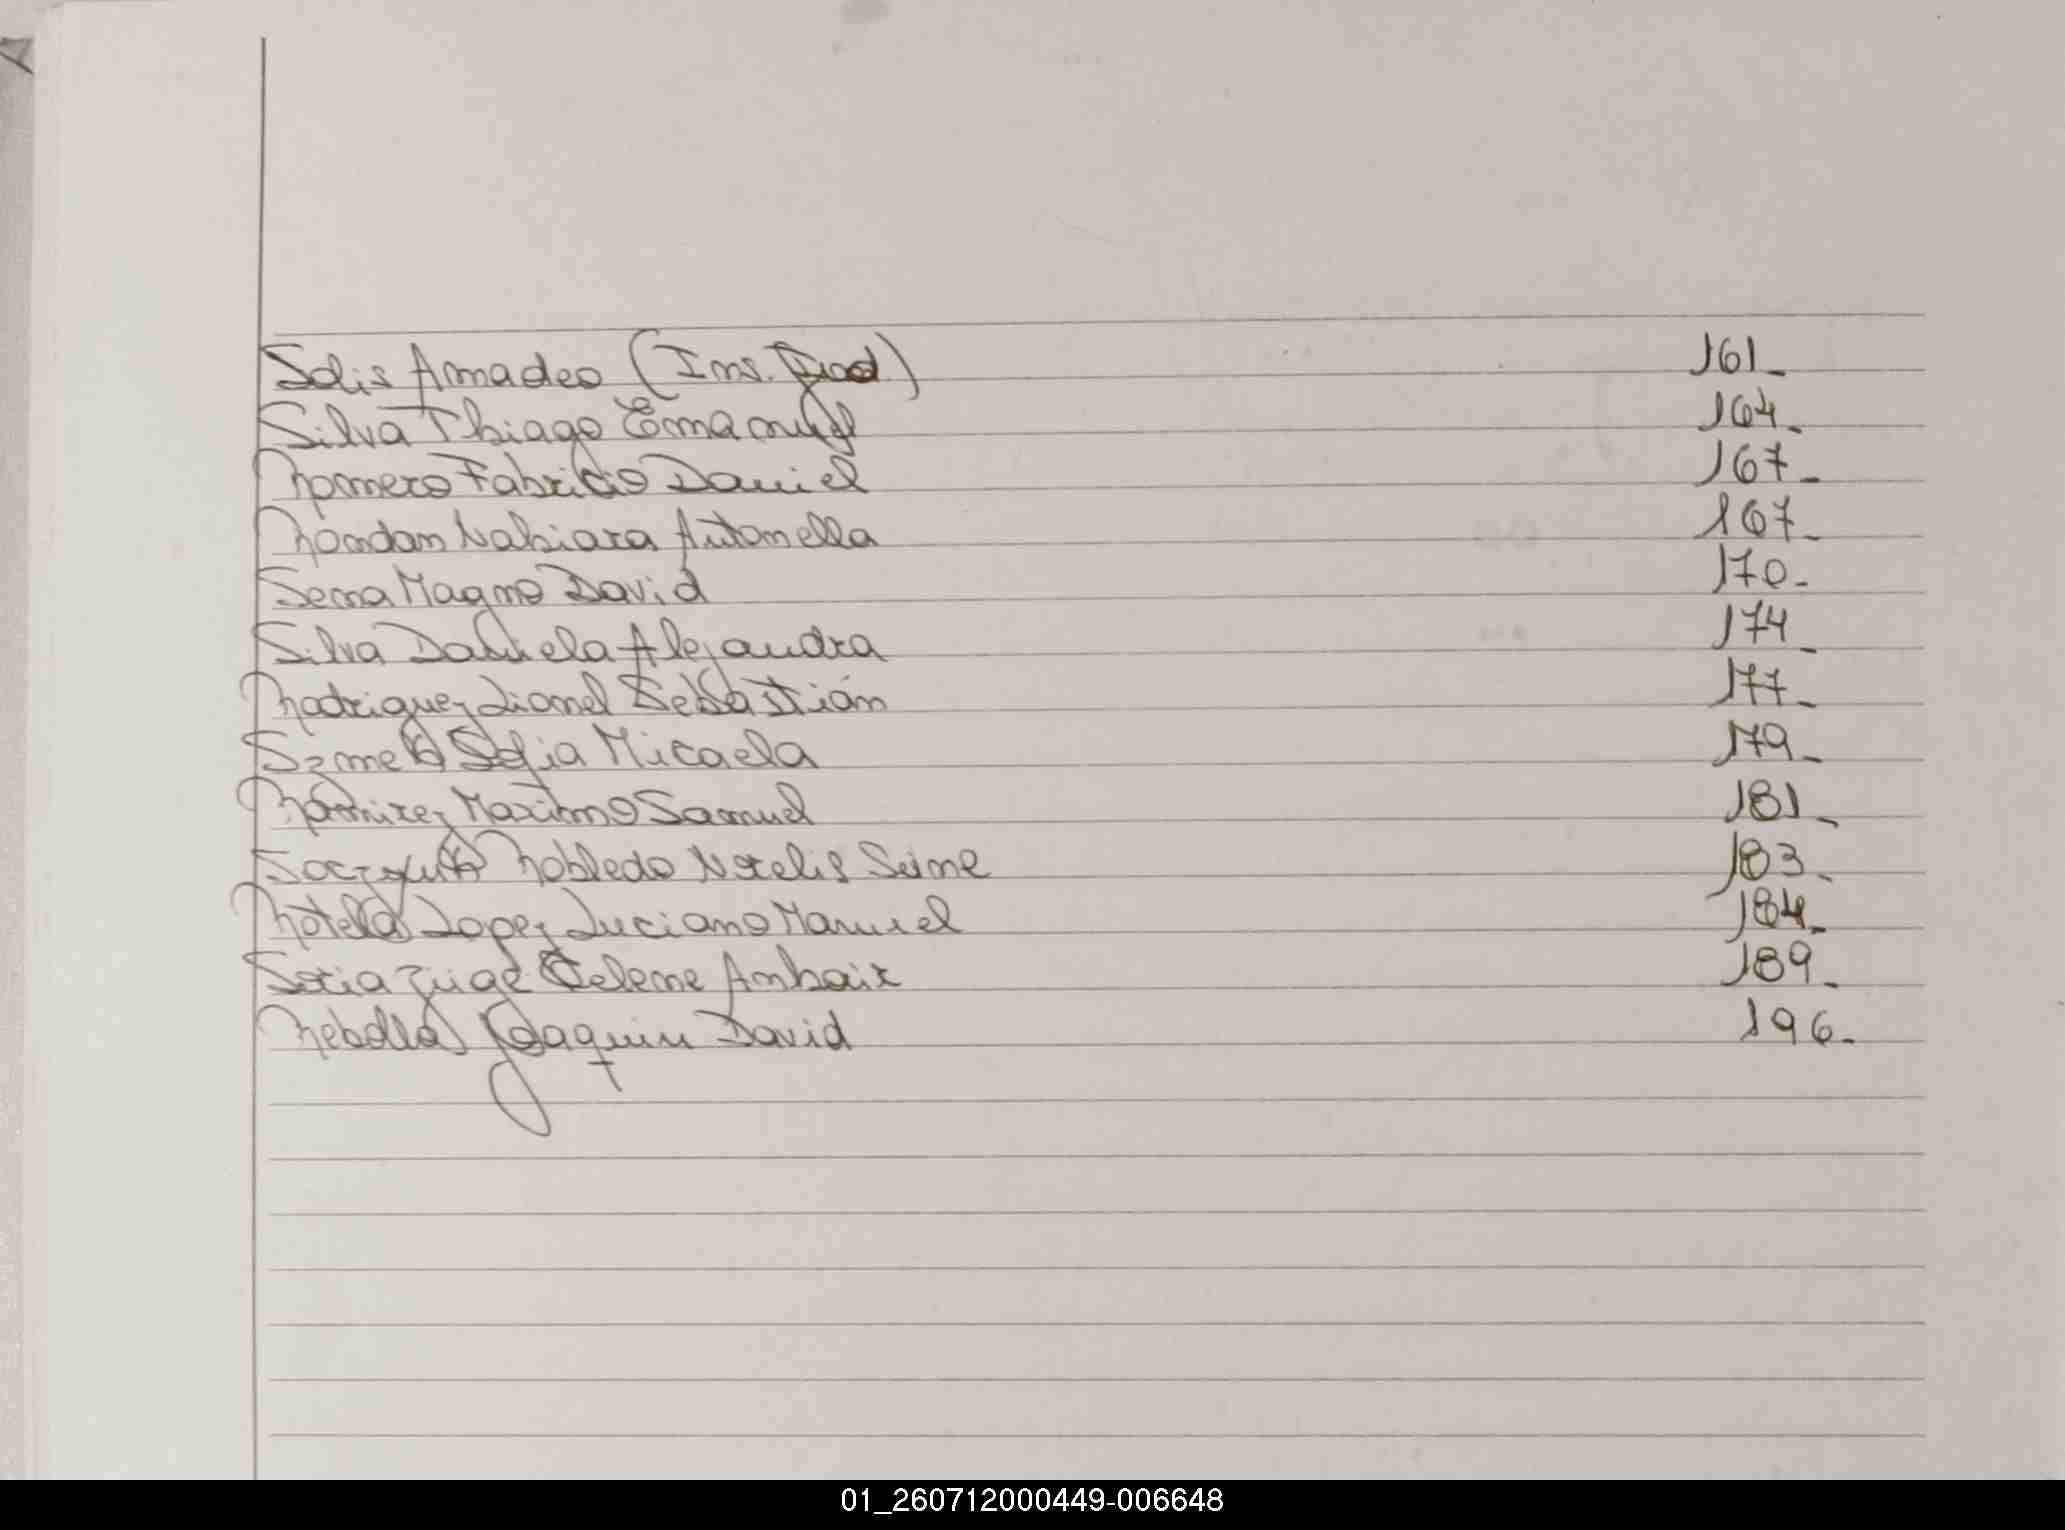 Solis Amadeo (Ins. Jud.) 161_
Silva Thiago Emanuel 164_
Romero Fabricio Daniel 167_
Rondan Nahiara Antonella 167_
Serna Magno David 170_
Silva Daniela Alejandra 174_
Rodriguez Lionel Sebastián 177_
Sofia Micaela 179_
Ramirez Maximo Samuel 181_
Robledo 183_
Rotela Lopez Luciano Manuel 184_
Celeme Ambair 189_
Rebolla Joaquin David 196_
01_260712000449-006648